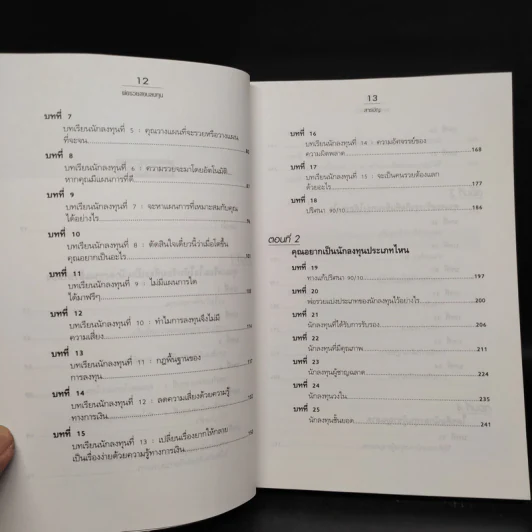 12
พ่อรวยสอนลงทุน
บทที่ 7
บทเรียนนักลงทุนที่ 5 : คุณวางแผนที่จะรวยหรือวางแผน
ที่จะจน
บทที่ 8
บทเรียนนักลงทุนที่ 6 : ความรวยจะมาโดยอัตโนมัติ...
หากคุณมีแผนการที่ดี
บทที่ 9
บทเรียนนักลงทุนที่ 7 : จะหาแผนการที่เหมาะสมกับคุณ
ได้อย่างไร
บทที่ 10
บทเรียนนักลงทุนที่ 8 : ตัดสินใจเดี๋ยวนี้ว่าเมื่อโตขึ้น
คุณอยากเป็นอะไร
บทที่ 11
บทเรียนนักลงทุนที่ 9 : ไม่มีแผนการใด
ได้มาฟรีๆ
บทที่ 12
บทเรียนนักลงทุนที่ 10 : ทำไมการลงทุนจึงไม่มี
ความเสี่ยง
บทที่ 13
บทเรียนนักลงทุนที่ 11 : กฎพื้นฐานของ
การลงทุน
บทที่ 14
บทเรียนนักลงทุนที่ 12 : ลดความเสี่ยงด้วยความรู้
ทางการเงิน
บทที่ 15
บทเรียนนักลงทุนที่ 13 : เปลี่ยนเรื่องยากให้กลาย
เป็นเรื่องง่ายด้วยความรู้ทางการเงิน
13
สารบัญ
บทที่ 16
บทเรียนนักลงทุนที่ 14 : ความอัศจรรย์ของ
ความผิดพลาด 168
บทที่ 17
บทเรียนนักลงทุนที่ 15 : จะเป็นคนรวยต้องแลก
ด้วยอะไร 177
บทที่ 18
ปริศนา 90/10 186
ตอนที่ 2
คุณอยากเป็นนักลงทุนประเภทไหน
บทที่ 19
ทางแก้ปริศนา 90/10 197
บทที่ 20
พ่อรวยแบ่งประเภทของนักลงทุนไว้อย่างไร 200
บทที่ 21
นักลงทุนที่ได้รับการรับรอง 206
บทที่ 22
นักลงทุนที่มีคุณภาพ 211
บทที่ 23
นักลงทุนผู้ชาญฉลาด 224
บทที่ 24
นักลงทุนวงใน 235
บทที่ 25
นักลงทุนชั้นยอด 241